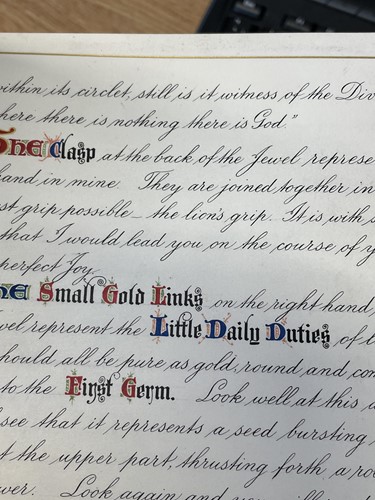 within its circlet, still is it witness of the Div
here there is nothing there is God."
The Clasp at the back of the Jewel represe
hand in mine. They are joined together in
st grip possible – the lion's grip. It is with
that I would lead you on the course of y
perfect Joy.
The Small Gold Links on the right hand,
wel represent the Little Daily Duties of l
should all be pure as gold, round, and con
to the First Germ. Look well at this
see that it represents a seed bursting
t the upper part, thrusting forth a ro
wer. Look again and